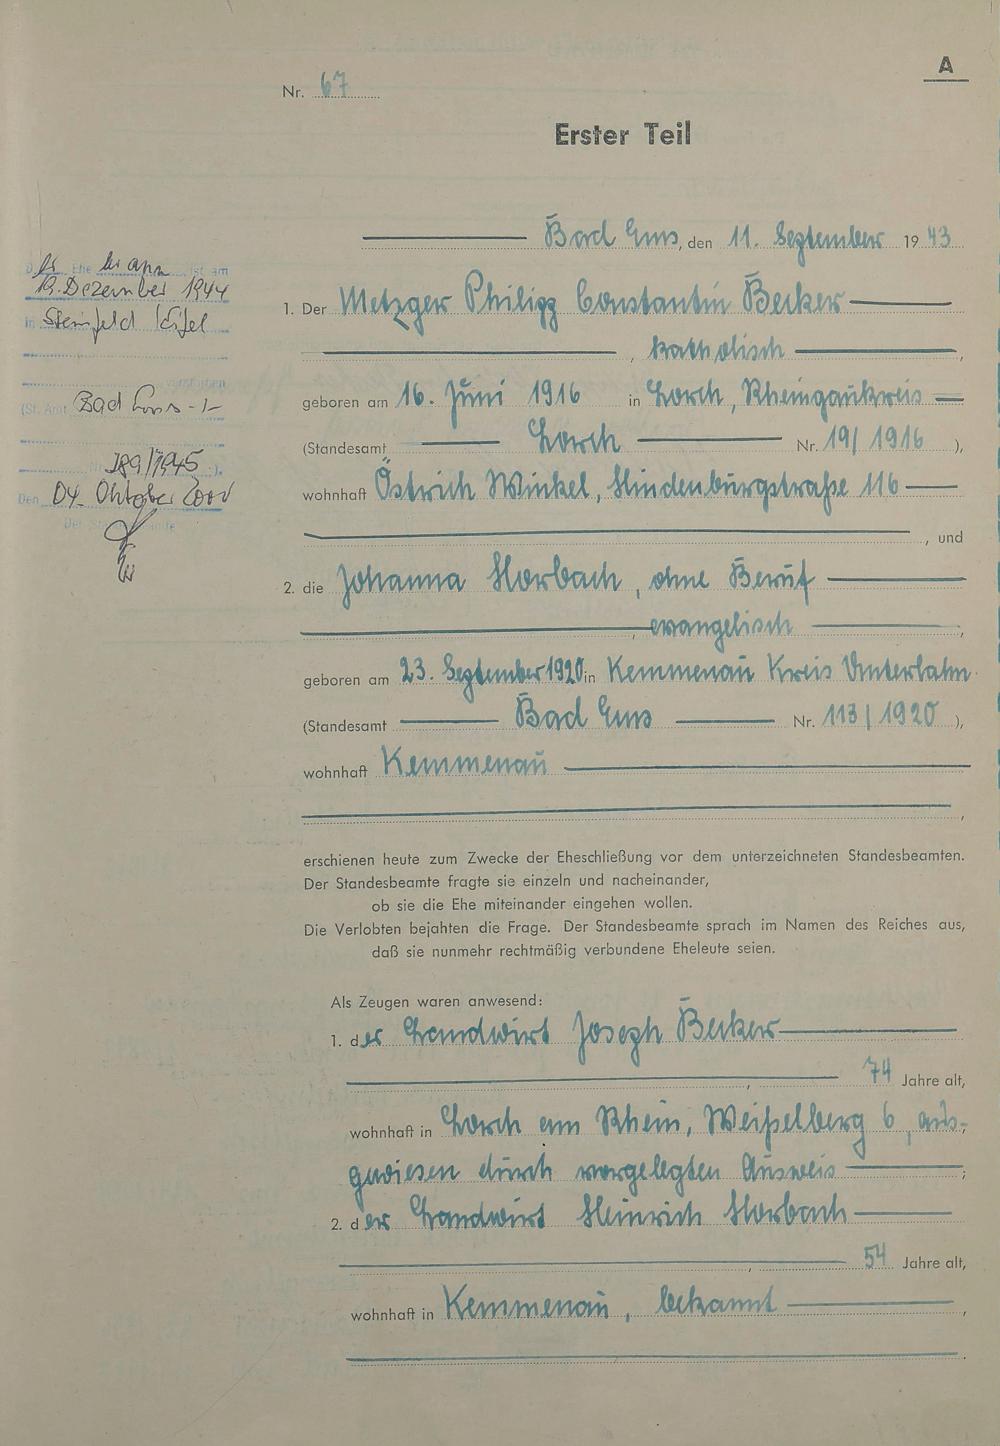 A
Nr. 67
Erster Teil
Bad Ems, den 11. September 1943
Der Ehemann ist am
19. Dezember 1944
in Steinfeld / Eifel
verstorben
(St. Amt Bad Ems -I-
Nr. 189/1945 ).
Den 04. Oktober 2000
Der Standesbeamte
1. Der Metzger Philipp Constantin Becker
, katholisch ,
geboren am 16. Juni 1916 in Lorch, Rheingaukreis
(Standesamt Lorch Nr. 19/ 1916 ),
wohnhaft Östrich Winkel, Hindenburgstraße 116
, und
2. die Johanna Horbach, ohne Beruf
, evangelisch ,
geboren am 23. September 1920 in Kemmenau Kreis Unterlahn
(Standesamt Bad Ems Nr. 113/1920 ),
wohnhaft Kemmenau
,
erschienen heute zum Zwecke der Eheschließung vor dem unterzeichneten Standesbeamten.
Der Standesbeamte fragte sie einzeln und nacheinander,
ob sie die Ehe miteinander eingehen wollen.
Die Verlobten bejahten die Frage. Der Standesbeamte sprach im Namen des Reiches aus,
daß sie nunmehr rechtmäßig verbundene Eheleute seien.
Als Zeugen waren anwesend:
1. der Landwirt Joseph Becker
, 74 Jahre alt,
wohnhaft in Lorch am Rhein, Weißelberg 6, aus-
gewiesen durch vorgelegten Ausweis ;
2. der Landwirt Heinrich Horbach
, 54 Jahre alt,
wohnhaft in Kemmenau, bekannt ,
.